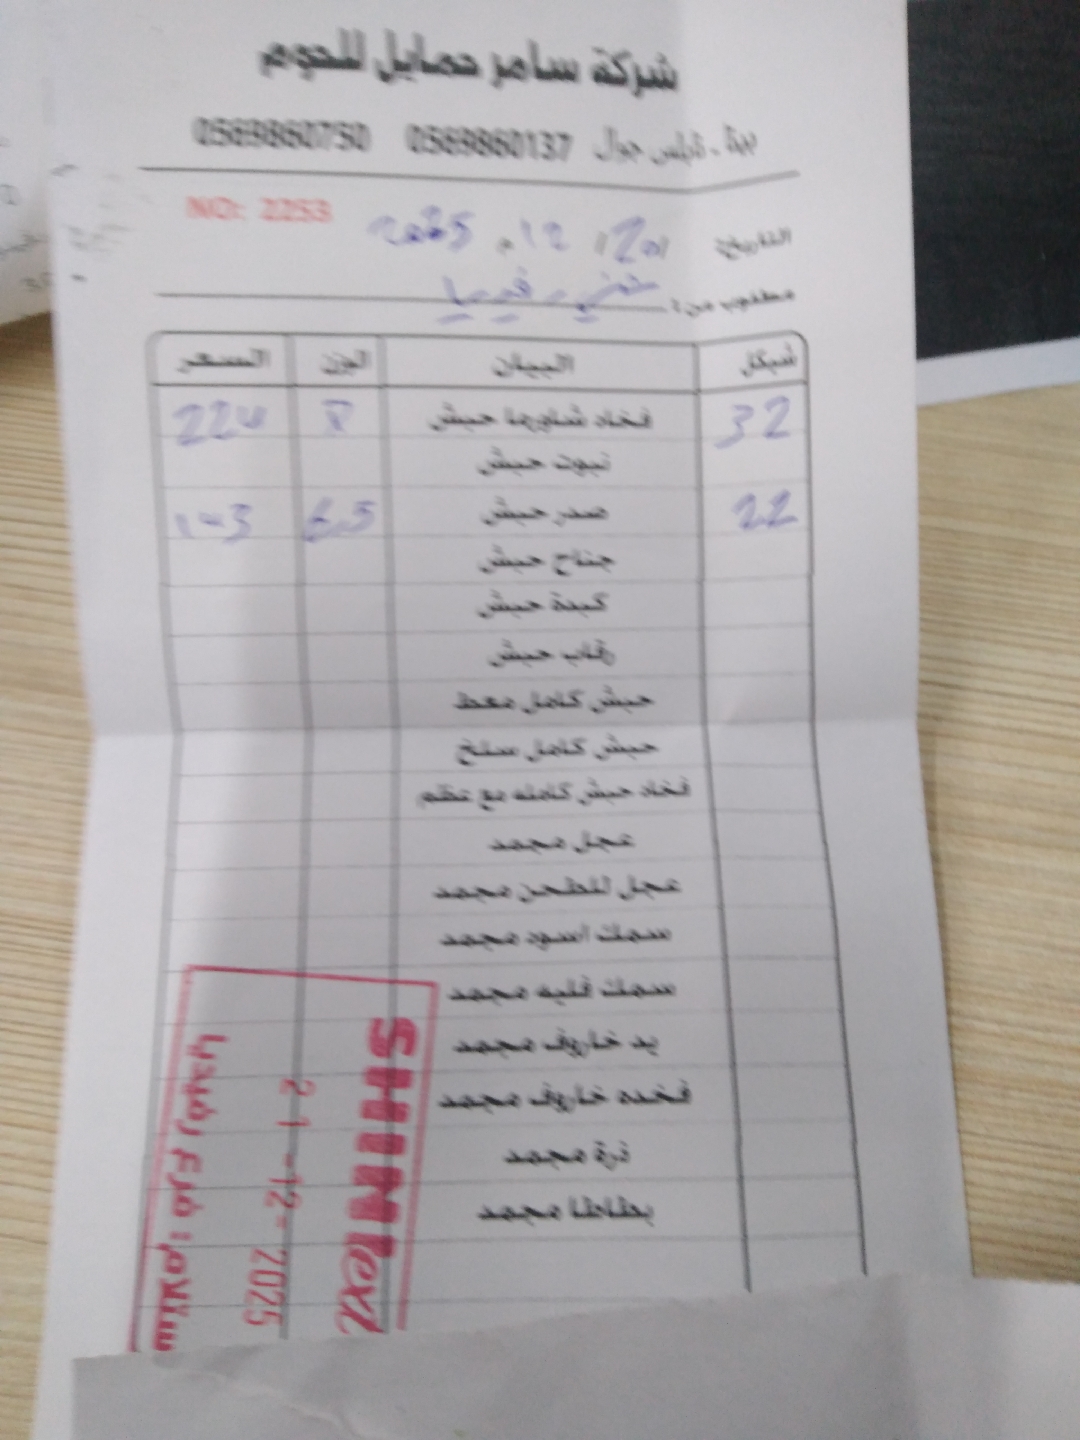 شركة سامر حمايل للحوم
بيتا - نابلس جوال 0569860137 0569860750
NO: 2253
التاريخ: 20 / 12 / 2025
مطلوب من:
شيكل البيان الوزن السعر
32 فخاد شاورما حبش 224
نبوت حبش
22 صدر حبش 6.5 143
جناح حبش
كبدة حبش
رقاب حبش
حبش كامل معط
حبش كامل سلخ
فخاد حبش كامله مع عظم
عجل مجمد
عجل للطحن مجمد
سمك اسود مجمد
سمك فليه مجمد
يد خاروف مجمد
فخده خاروف مجمد
ذرة مجمد
بطاطا مجمد
SHINI
21-12-2025
فرع رفيديا